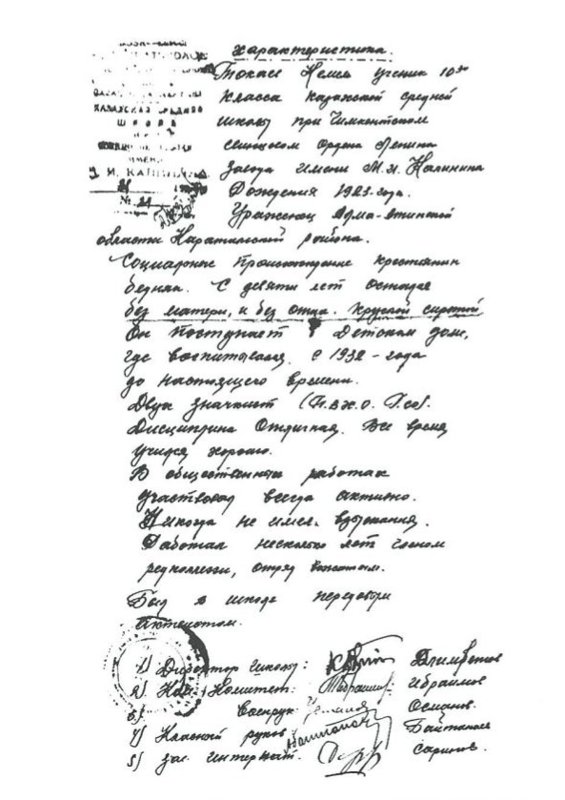 Характеристика.
КАЗАХСКАЯ СРЕДНЯЯ
ШКОЛА
ИМЕНИ
М. И. КАЛИНИНА
№ 21
ученик 10го
класса казахской средней
школы при Чимкентском
свинцовом Ордена Ленина
завода имени М.И. Калинина
Рождения 1923-года.
Уроженец Алма-Атинской
области Каратальский района.
Социальное Происхождение крестьянин
бедняк. С девяти лет остался
без матери, и без отца. Круглой сиротой
Он поступает в Детском доме,
где воспитывался. с 1932-года
до настоящего времени.
Двух значкист (П.В.Х.О. Г.С.О).
Дисциплина Отличная. Все время
учился хорошо.
В общественных работах
участвовал всегда активно.
Никогда не имел взыскания.
Работал несколько лет членом
редколлегии, отряд вожатым.
Был в школе передовым
активистом.
1) Директор школы: Алимбетов
2) Ком. Комитет: Ибраимов
3) Военрук: Османов.
4) Класный руков.
5) зав. интернат. Сарипов.